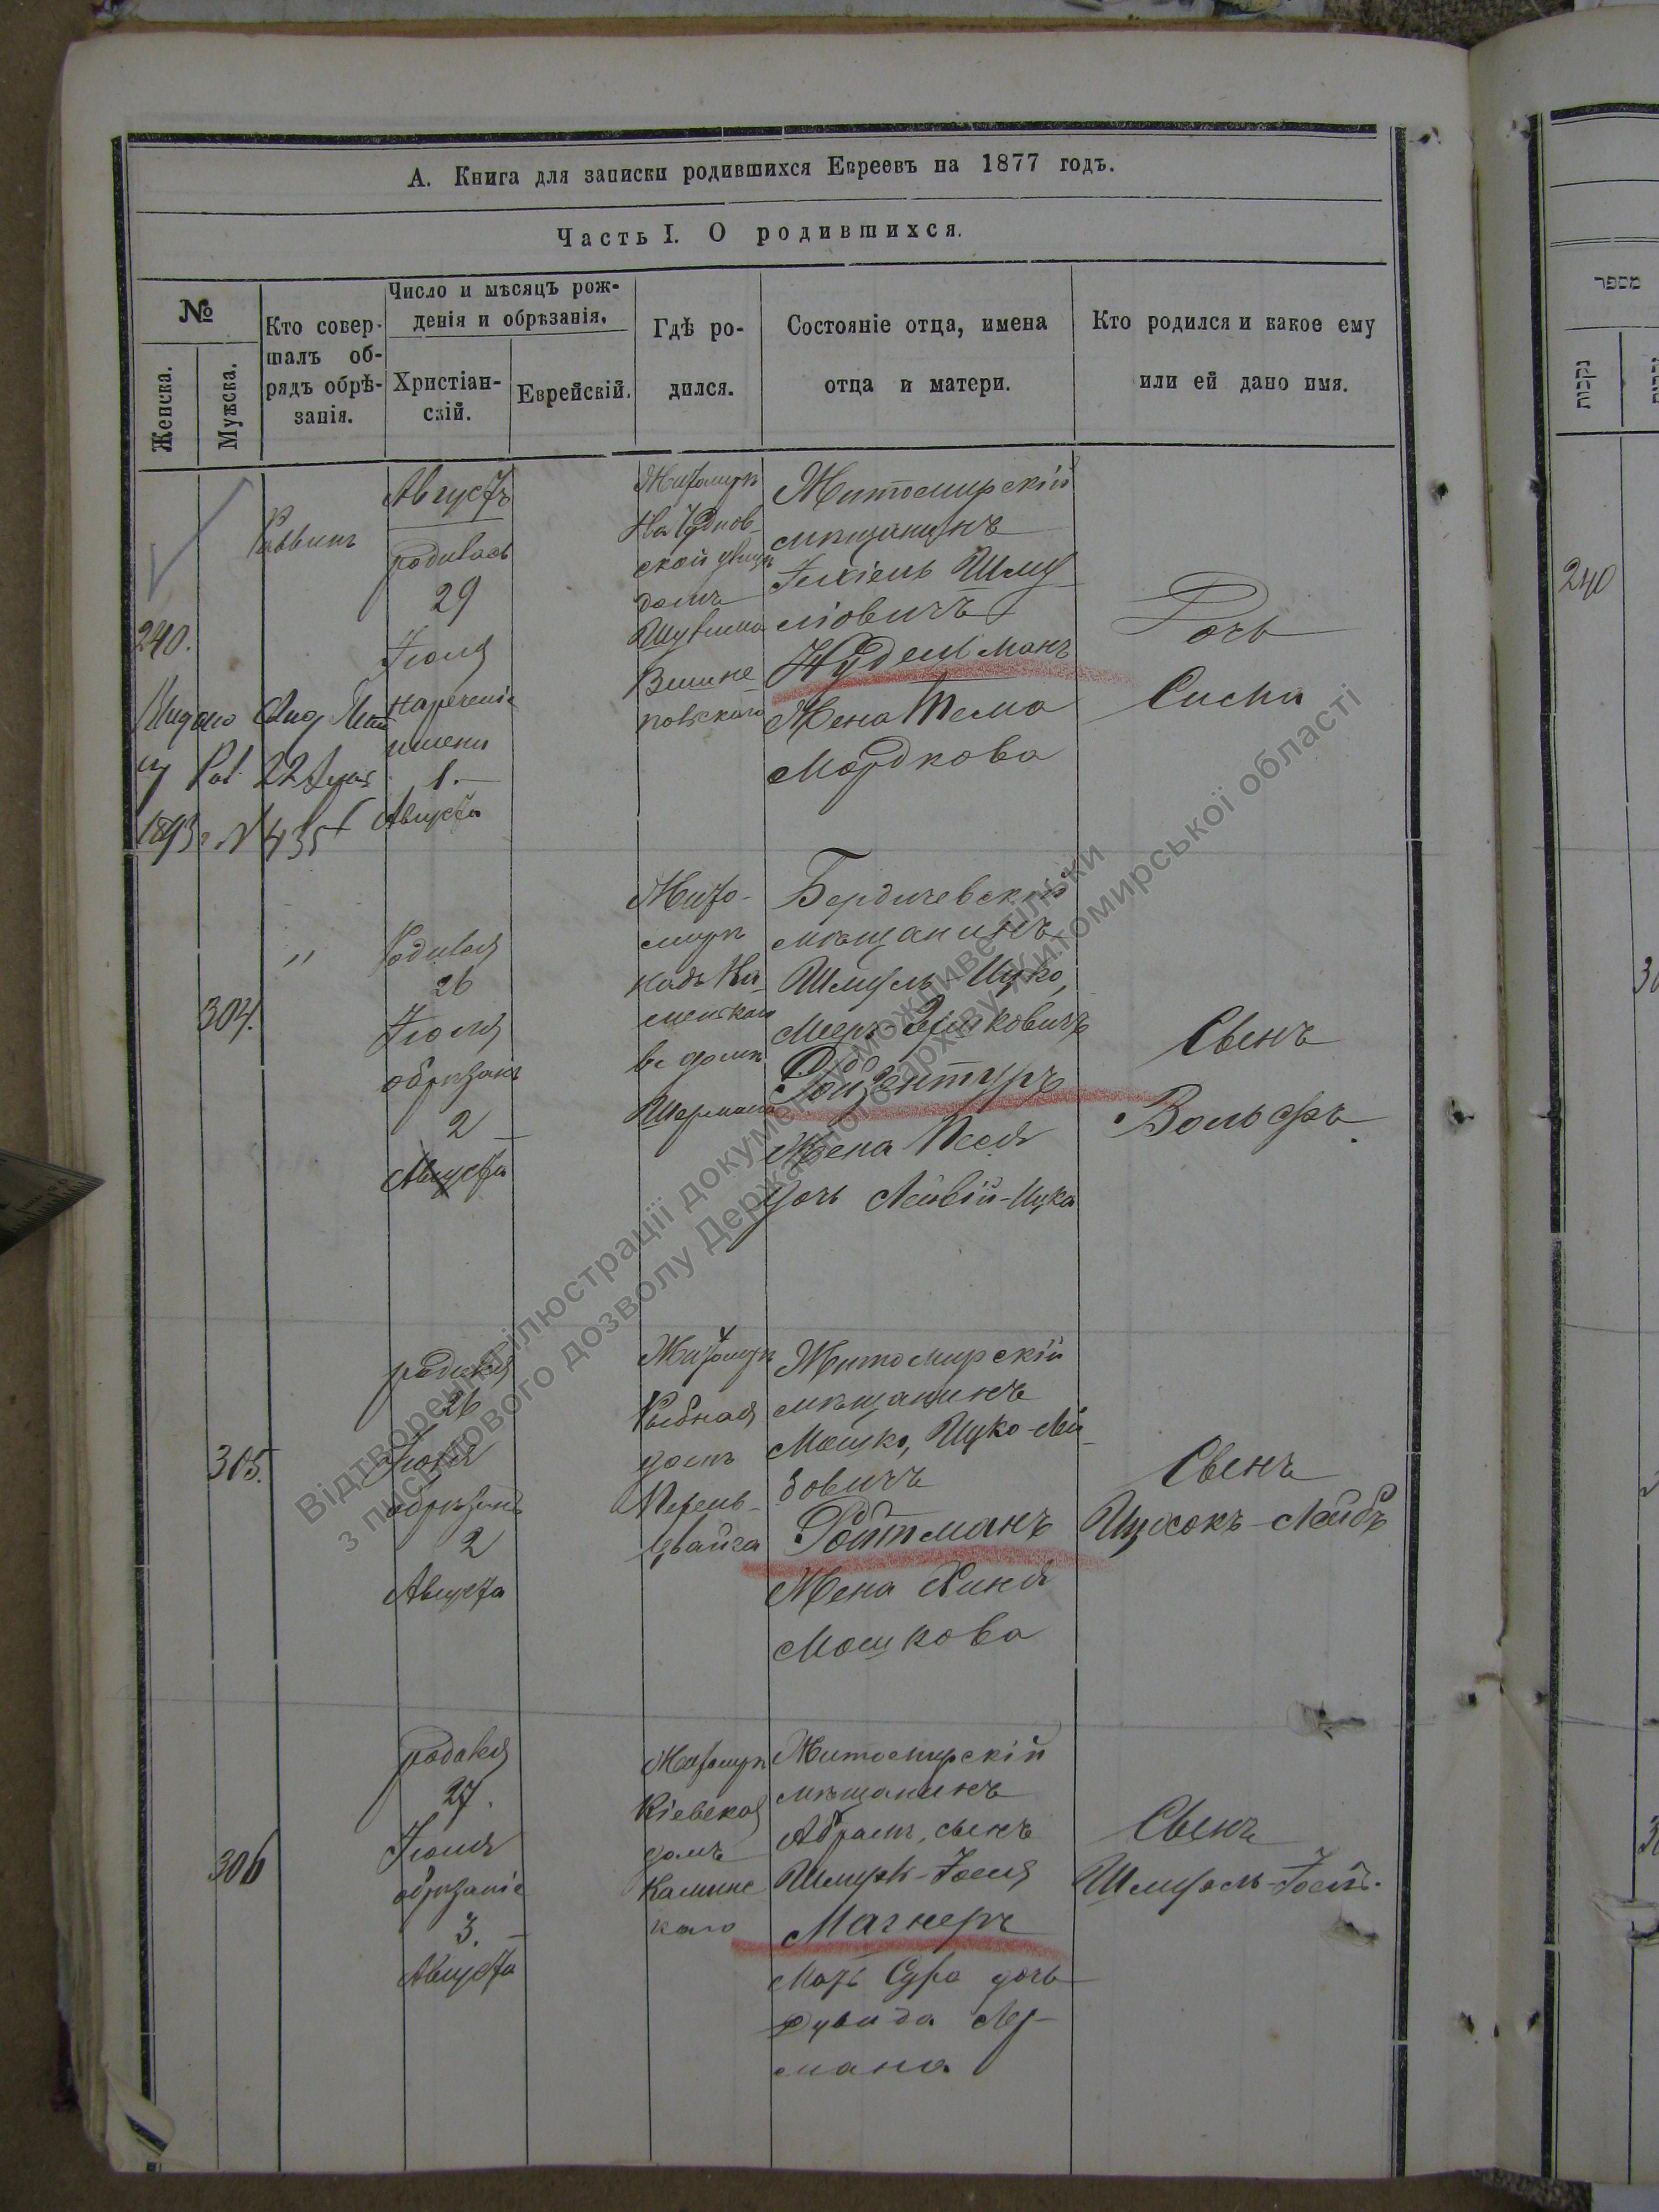 А. Книга для записки родившихся Евреевъ на 1877 годъ.
Часть I. О родившихся.
№
Женска.
Мужска.
Кто совер-
шалъ об-
рядъ обрѣ-
занія.
Число и мѣсяцъ рож-
денія и обрѣзанія.
Христіан-
скій.
Еврейскій.
Гдѣ ро-
дился.
Состояніе отца, имена
отца и матери.
Кто родился и какое ему
или ей дано имя.
240.
Раввинъ
Августъ
родилась
29
Іюля
нареченіе
имени
1.
Августа
Житомиръ
На Чуднов-
ской улицѣ
домъ
Житомирскій
мѣщанинъ
Іехіель Шму
ліовичъ
Нудельманъ
Жена Тема
Мордкова
Дочь
Сися
22
1893 г. №
304.
"
Родился
26
Іюля
обрѣзанъ
2
Августа
Жито-
миръ
надъ Ка-
менкою
въ домѣ
Шермана
Бердичевскій
мѣщанинъ
Шмуль Ицко,
Ройзентуръ
Жена Песя
дочь Лейвій-Ицка
Сынъ
Вольфъ.
305.
родился
26
Іюля
обрѣзанъ
2
Августа
Житомиръ
Рыбная
домъ
Перель-
цвайга
Житомирскій
мѣщанинъ
Мошко, Ицко-Лей-
бовичъ
Ройтманъ
Жена Хиня
Мошкова
Сынъ
Ицхокъ-Лейбъ
306
родился
27.
Іюля
обрѣзаніе
3.
Августа
Житомиръ
Кіевская
домъ
Каминс
каго
Житомирскій
мѣщанинъ
Абрамъ, сынъ
Шмуля-Іося
Магнеръ
Мать Сура дочь
Дувида Лер-
мана
Сынъ
Шмуель-Іосй.
מספר
נקבות
240
Відтворення ілюстрації документу можливе тільки
з письмового дозволу Державного архіву Житомирської області